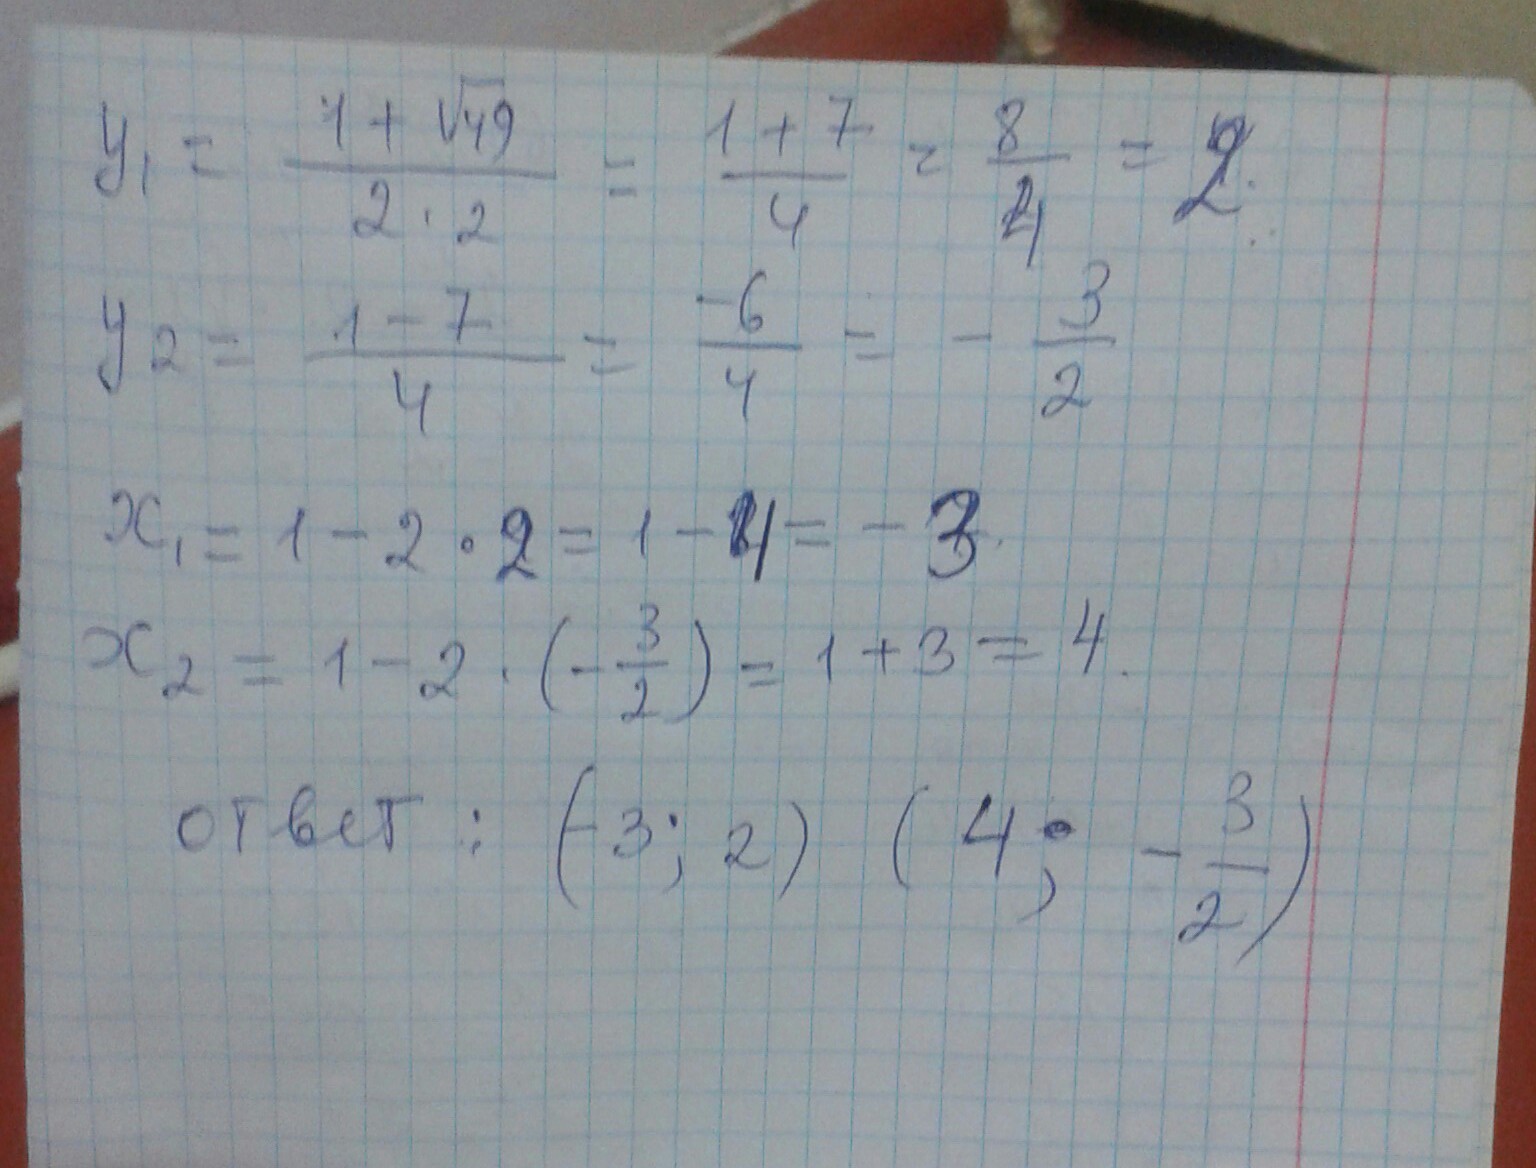 y₁ = (1 + √49)/(2 · 2) = (1 + 7)/4 = 8/4 = 2.
y₂ = (1 - 7)/4 = -6/4 = - 3/2
x₁ = 1 - 2 · 2 = 1 - 4 = - 3.
x₂ = 1 - 2 · (- 3/2) = 1 + 3 = 4.
ответ : (-3; 2) (4; - 3/2)